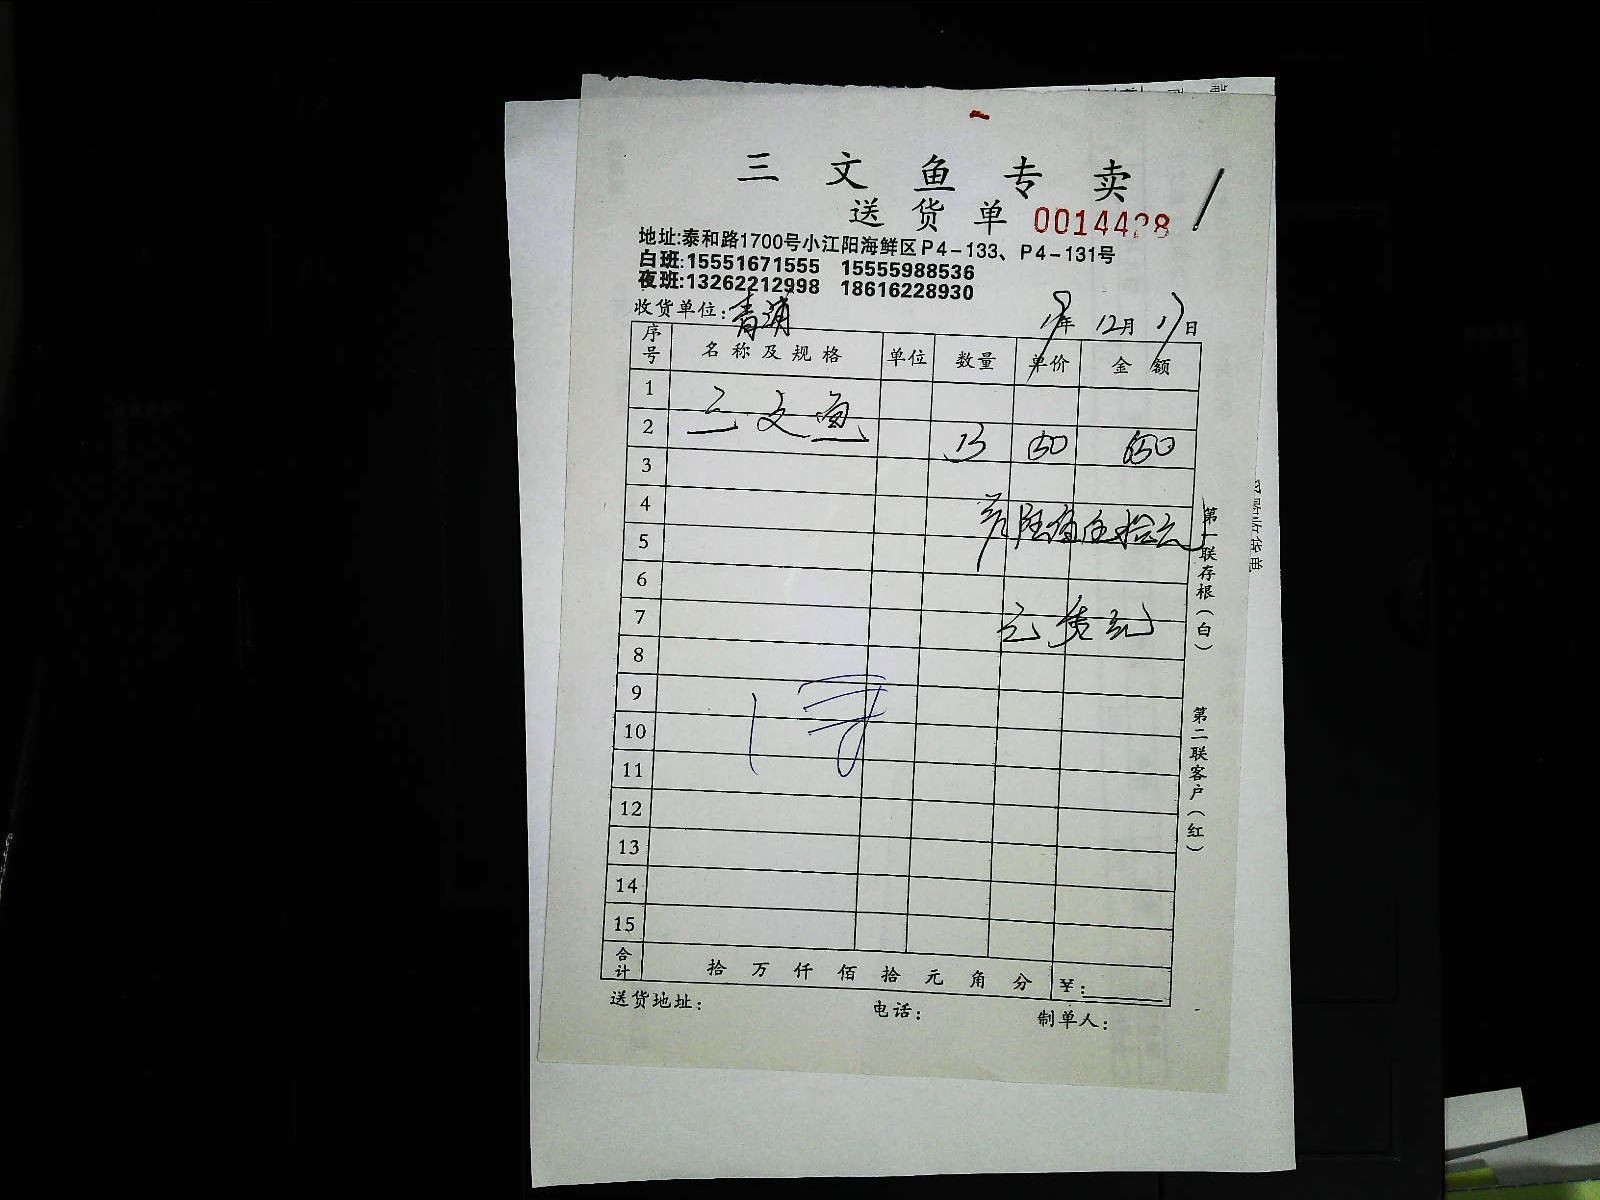 三文鱼专卖
送货单 0014428
地址:泰和路1700号小江阳海鲜区P4-133、P4-131号
白班:15551671555 15555988536
夜班:13262212998 18616228930
收货单位:青浦 年 12月 17日
序号 名称及规格 单位 数量 单价 金额
1
2 三文鱼 13 50 650
3
4
5
6
7
8
9
10
11
12
13
14
15
合计 拾万仟佰拾元角分 ¥:
送货地址: 电话: 制单人:
第一联存根(白)
第二联客户(红)